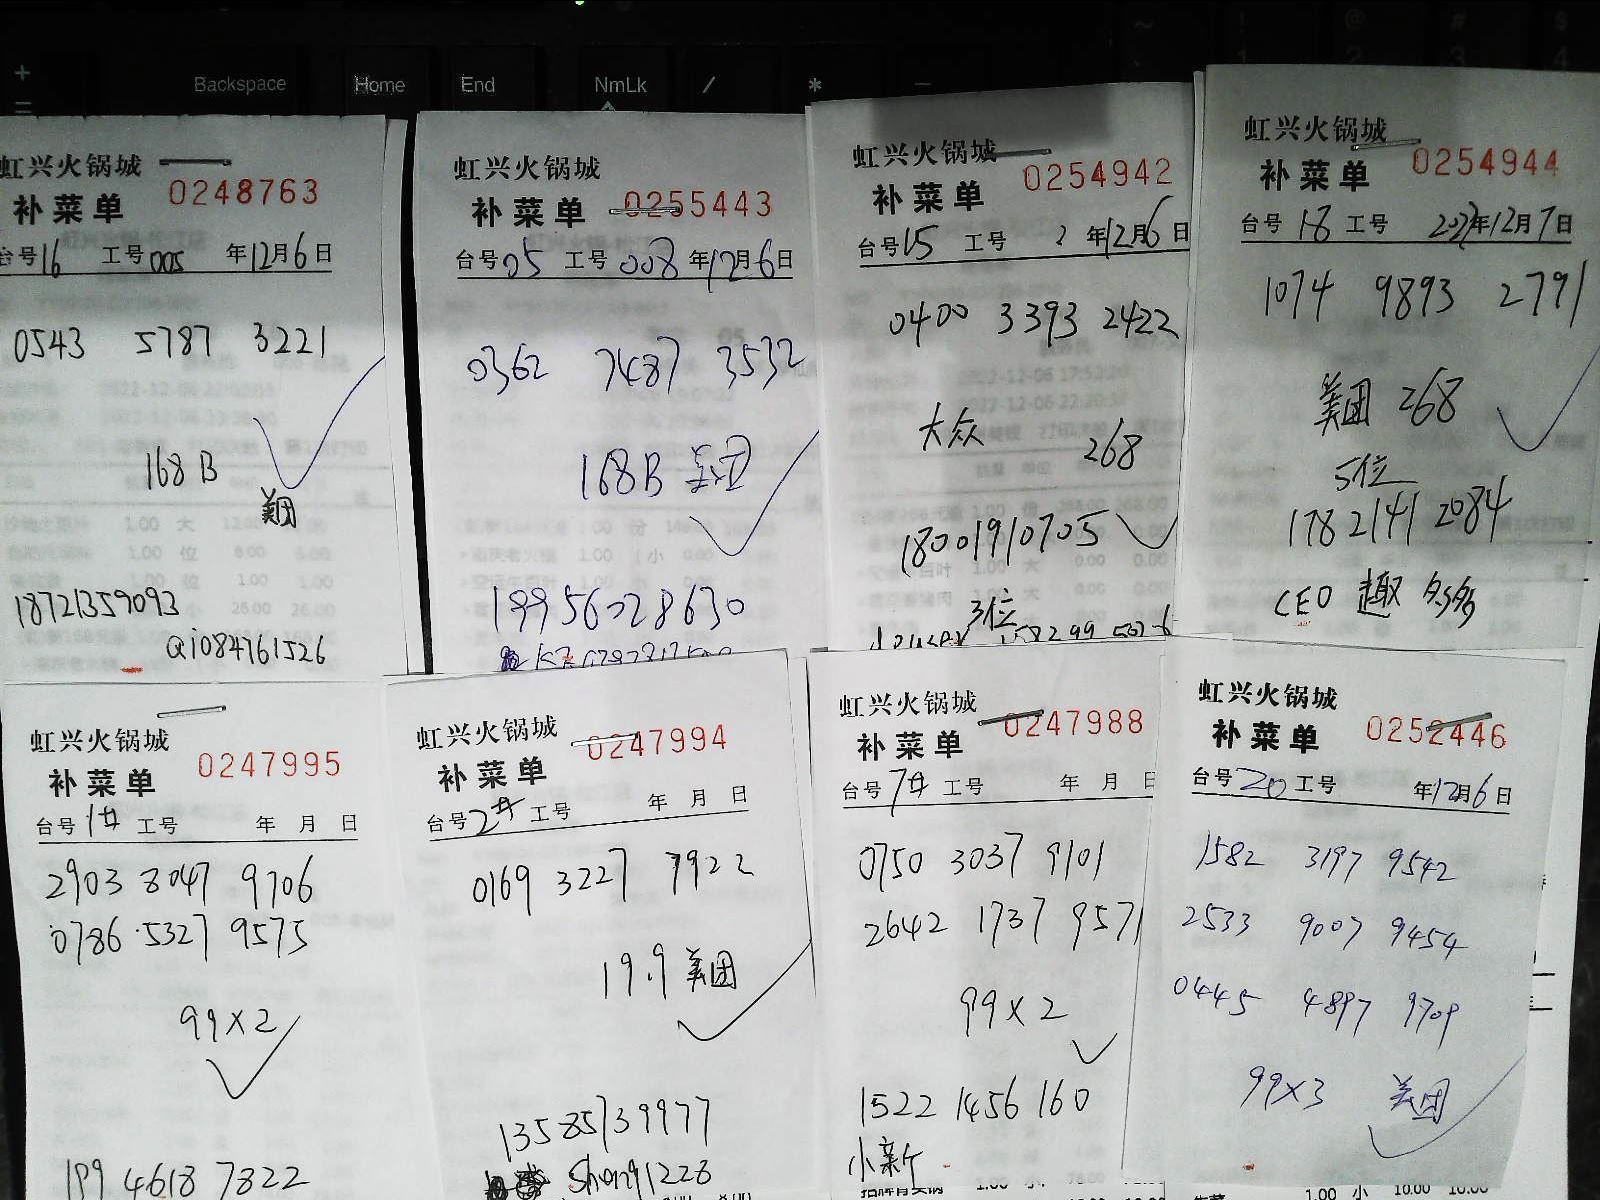 Backspace Home End NmLk / * -
虹兴火锅城
补菜单 0248763
台号16 工号005 年12月6日
0543 5787 3221
168B
美团
18721359093
Qi084761526
虹兴火锅城
补菜单 0255443
台号05 工号008 年12月6日
0362 7487 3532
168B 美团
19956028630
虹兴火锅城
补菜单 0254942
台号15 工号 2 年12月6日
0400 3393 2422
大众 268
18001910705
3位
虹兴火锅城
补菜单 0254944
台号18 工号 2022年12月7日
1074 9893 2791
美团 268
5位
178 2141 2084
CEO 趣多多
虹兴火锅城
补菜单 0247995
台号1# 工号 年 月 日
2903 8047 9706
0786 5327 9575
99×2
199 4618 7822
虹兴火锅城
补菜单 0247994
台号2# 工号 年 月 日
0169 3227 7922
19.9 美团
13585739977
Shong1228
虹兴火锅城
补菜单 0247988
台号7# 工号 年 月 日
0750 3037 9101
2642 1737 9571
99×2
1522 1456 160
小新
虹兴火锅城
补菜单 0252446
台号20 工号 年12月6日
1582 3197 9542
2533 9007 9454
0445 4897 9709
99×3 美团